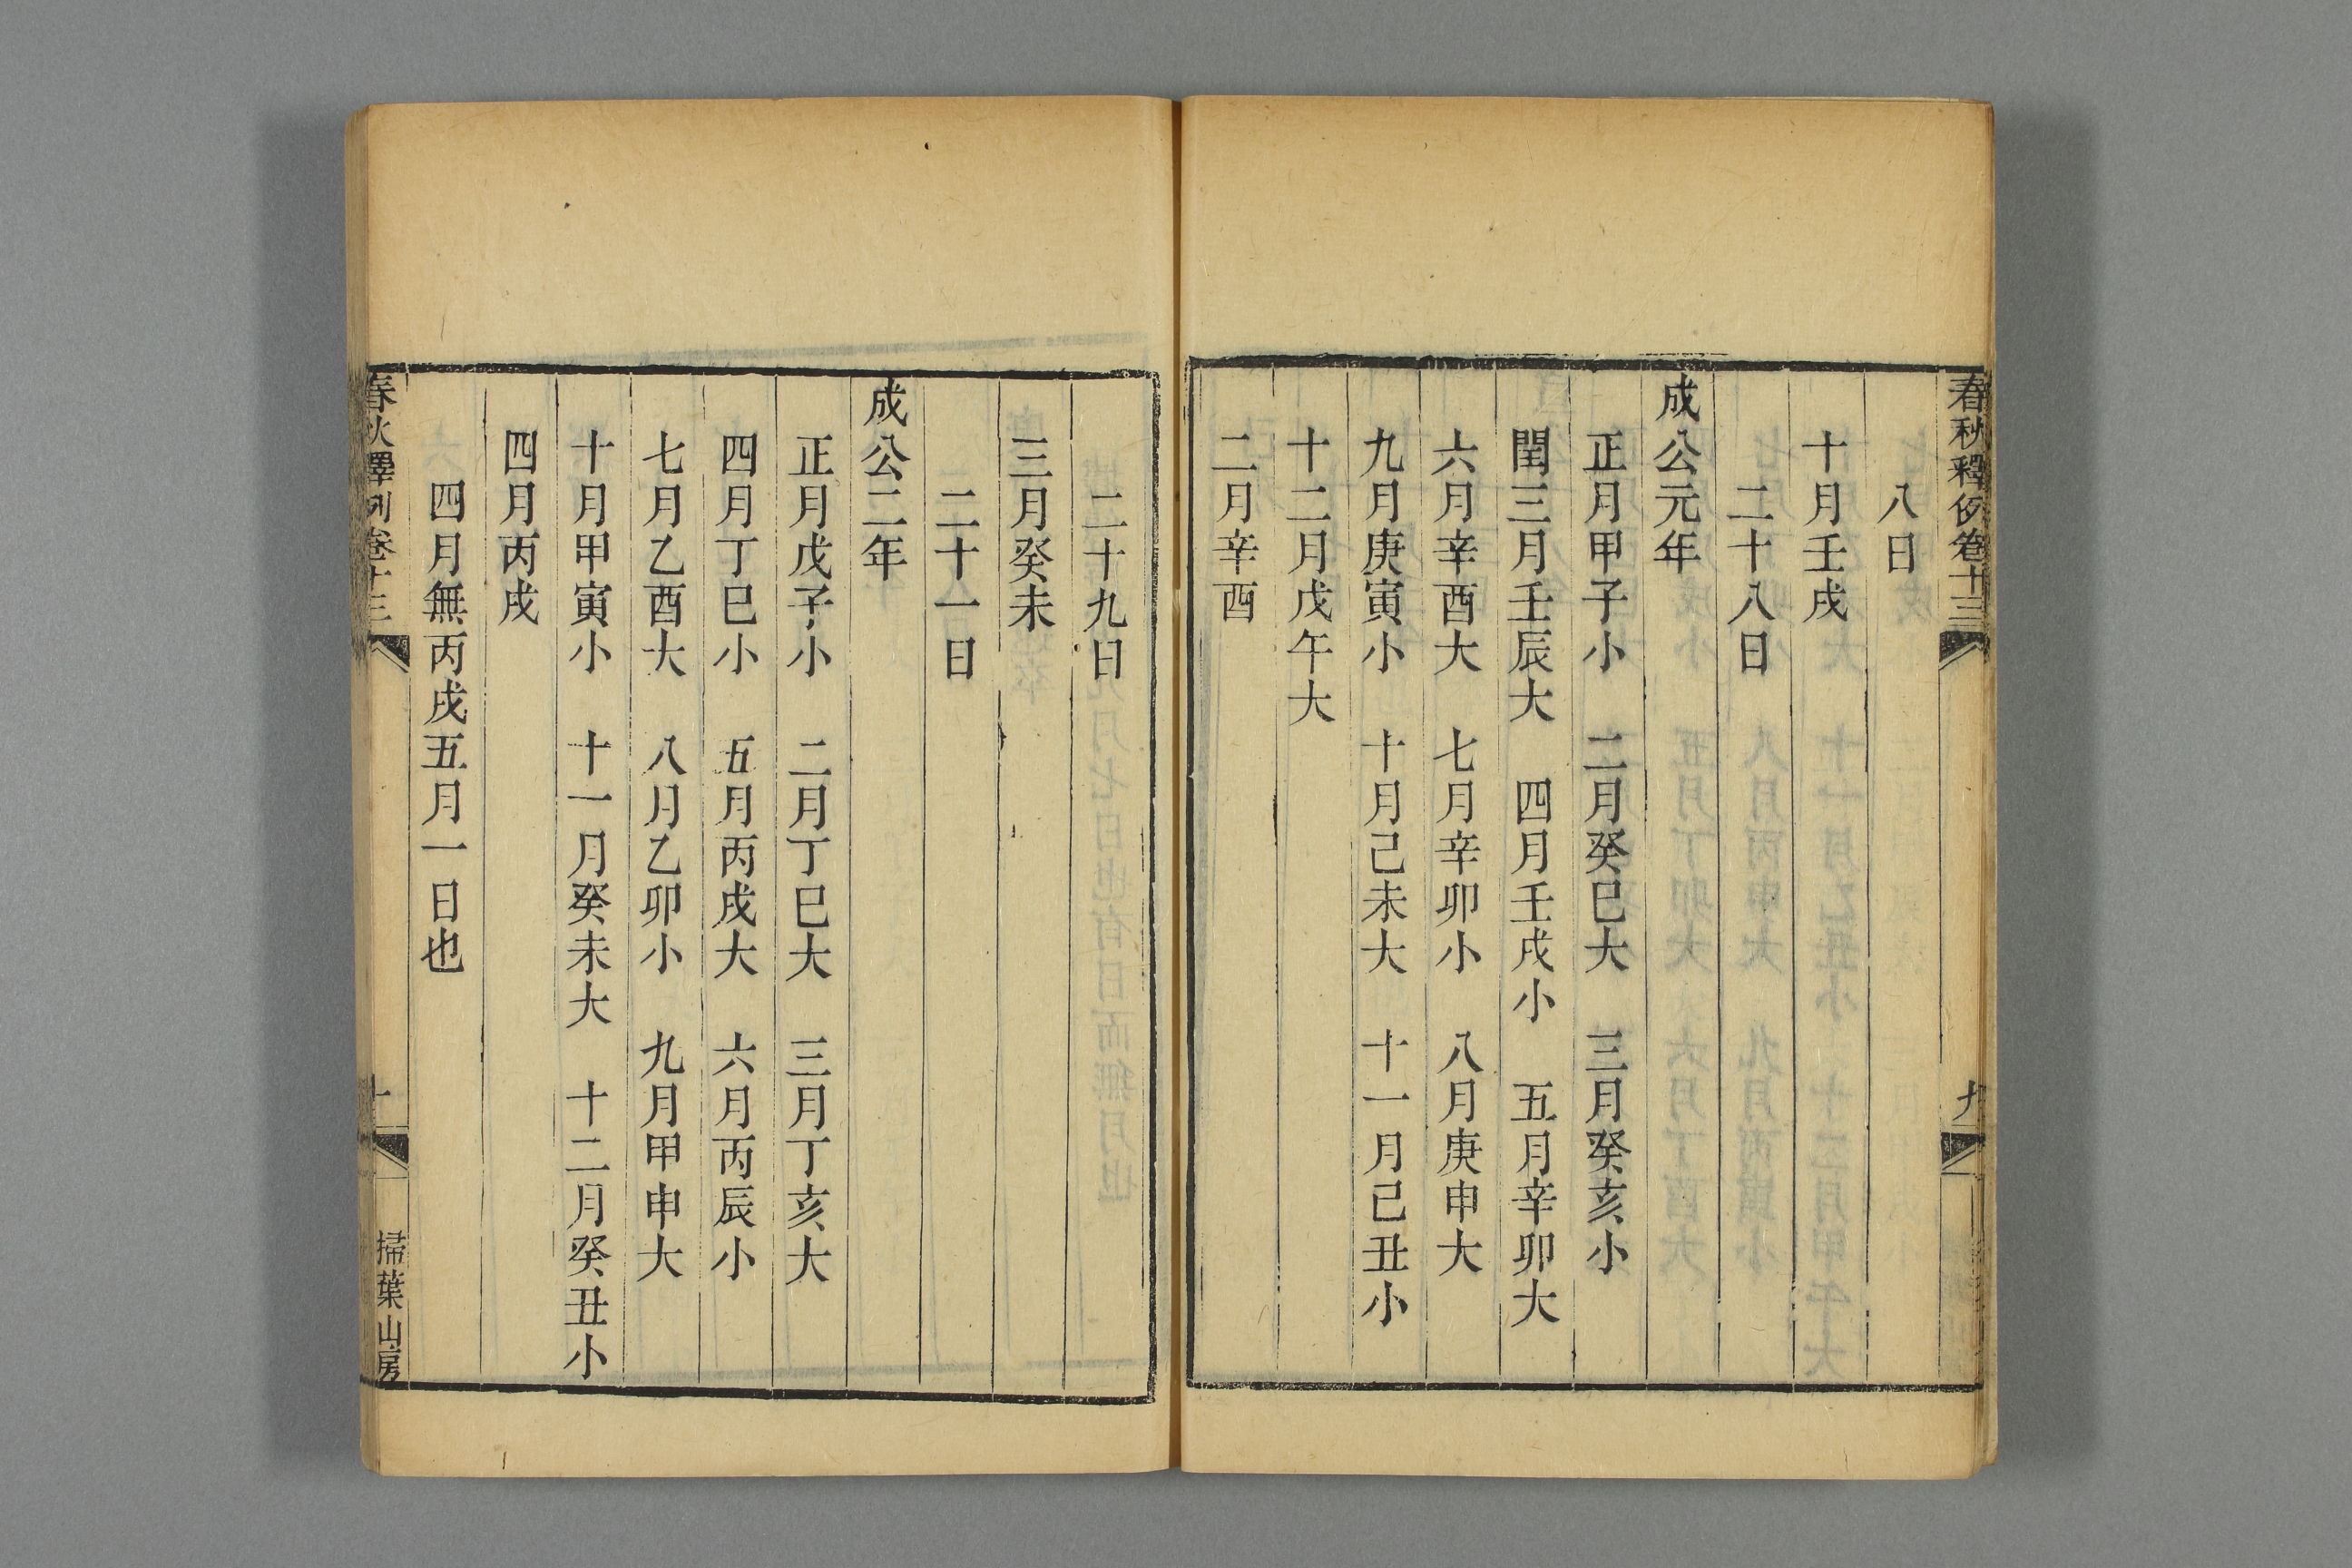 春秋釋例卷十三
九
八日
十月壬戌
二十八日
成公元年
正月甲子小　二月癸巳大　三月癸亥小
閏三月壬辰大　四月壬戌小　五月辛卯大
六月辛酉大　七月辛卯小　八月庚申大
九月庚寅小　十月己未大　十一月己丑小
十二月戊午大
二月辛酉
二十九日
三月癸未
二十一日
成公二年
正月戊子小　二月丁巳大　三月丁亥大
四月丁巳小　五月丙戌大　六月丙辰小
七月乙酉大　八月乙卯小　九月甲申大
十月甲寅小　十一月癸未大　十二月癸丑小
四月丙戌
四月無丙戌五月一日也
春秋釋例卷十三
十
掃葉山房